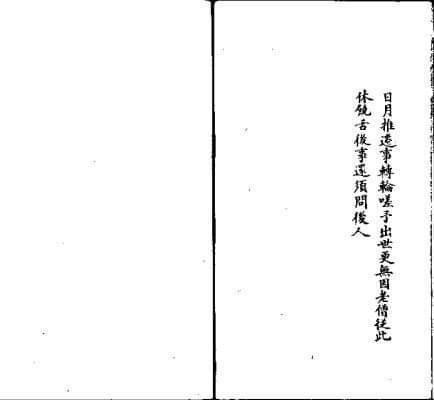 日月推遷事轉輪嗟予出世更無因老僧從此
休饒舌後事還須問後人